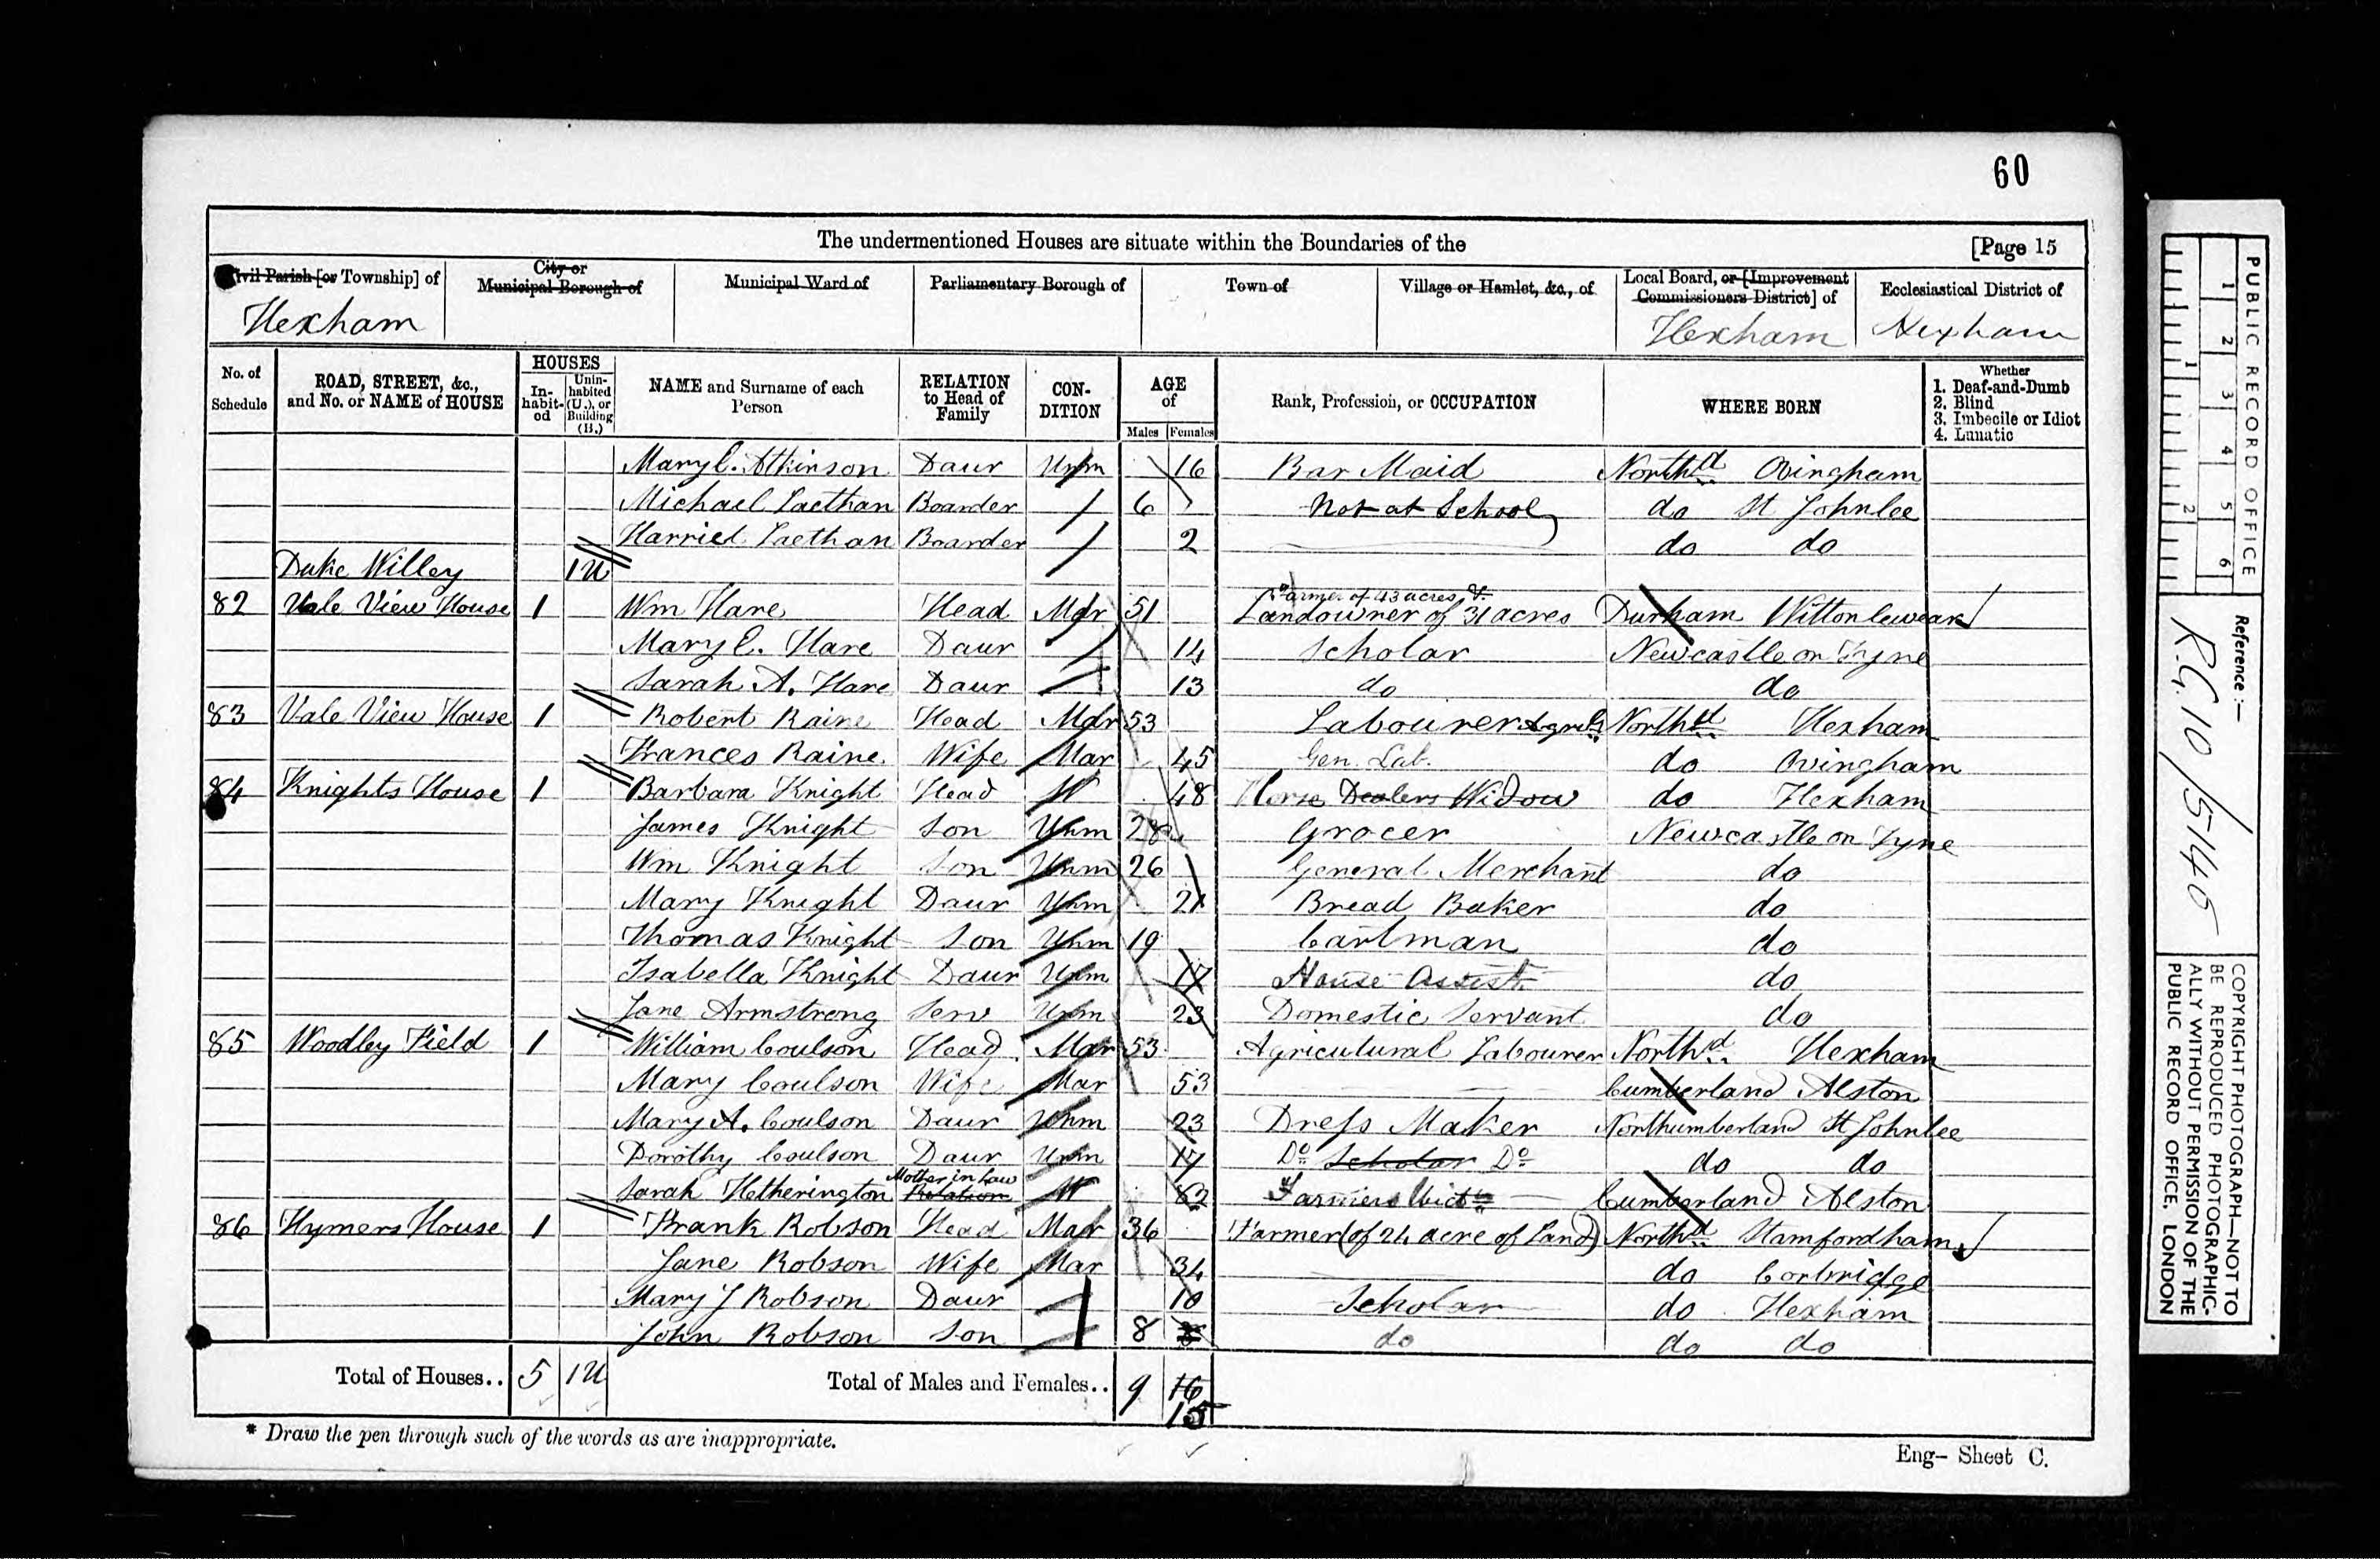 60
The undermentioned Houses are situate within the Boundaries of the [Page 15
Civil Parish [or Township] of City or Municipal Borough of Municipal Ward of Parliamentary Borough of Town of Village or Hamlet, &c., of Local Board, or [Improvement Commissioners District] of Ecclesiastical District of
Hexham Hexham Hexham
No. of Schedule ROAD, STREET, &c., and No. or NAME of HOUSE HOUSES In-habit-ed Unin-habited (U.), or Building (B.) NAME and Surname of each Person RELATION to Head of Family CON-DITION AGE of Males Females Rank, Profession, or OCCUPATION WHERE BORN Whether 1. Deaf-and-Dumb 2. Blind 3. Imbecile or Idiot 4. Lunatic
Mary C. Atkinson Daur Unm 16 Bar Maid Northd Ovingham
Michael Laethan Boarder 6 Not at School do St Johnlee
Harriet Laethan Boarder 2 do do
Duke Willey 1U
82 Vale View House 1 Wm Hare Head Mdr 51 Farmer of 43 acres & Landowner of 31 acres Durham Wittonlewear
Mary E. Hare Daur 14 Scholar Newcastle on Tyne
Sarah A. Hare Daur 13 do do
83 Vale View House 1 Robert Raine Head Mdr 53 Labourer Agrl Northd Hexham
Frances Raine Wife Mar 45 Gen. Lab. do Ovingham
84 Knights House 1 Barbara Knight Head W 48 Horse Dealers Widow do Hexham
James Knight Son Unm 28 Grocer Newcastle on Tyne
Wm Knight Son Unm 26 General Merchant do
Mary Knight Daur Unm 21 Bread Baker do
Thomas Knight Son Unm 19 Cartman do
Isabella Knight Daur Unm 17 House Assist. do
Jane Armstrong Serv Unm 23 Domestic Servant do
85 Woodley Field 1 William Coulson Head Mar 53 Agricultural Labourer Northd Hexham
Mary Coulson Wife Mar 53 Cumberland Alston
Mary A. Coulson Daur Unm 23 Dress Maker Northumberland St Johnlee
Dorothy Coulson Daur Unm 17 Do Scholar Do do do
Sarah Hetherington Mother in Law Relation W 82 Farmers Wid Cumberland Alston
86 Hymers House 1 Frank Robson Head Mar 36 Farmer (of 24 acre of Land) Northd Stamfordham
Jane Robson Wife Mar 34 do Corbridge
Mary J Robson Daur 10 Scholar do Hexham
John Robson Son 8 8 do do do
Total of Houses.. 5 1U Total of Males and Females.. 9 16
15
* Draw the pen through such of the words as are inappropriate.
Eng- Sheet C.
PUBLIC RECORD OFFICE
1 2 3 4 5 6
1 2
Reference:-
R.G. 10/5145
COPYRIGHT PHOTOGRAPH—NOT TO
BE REPRODUCED PHOTOGRAPHIC-
ALLY WITHOUT PERMISSION OF THE
PUBLIC RECORD OFFICE, LONDON